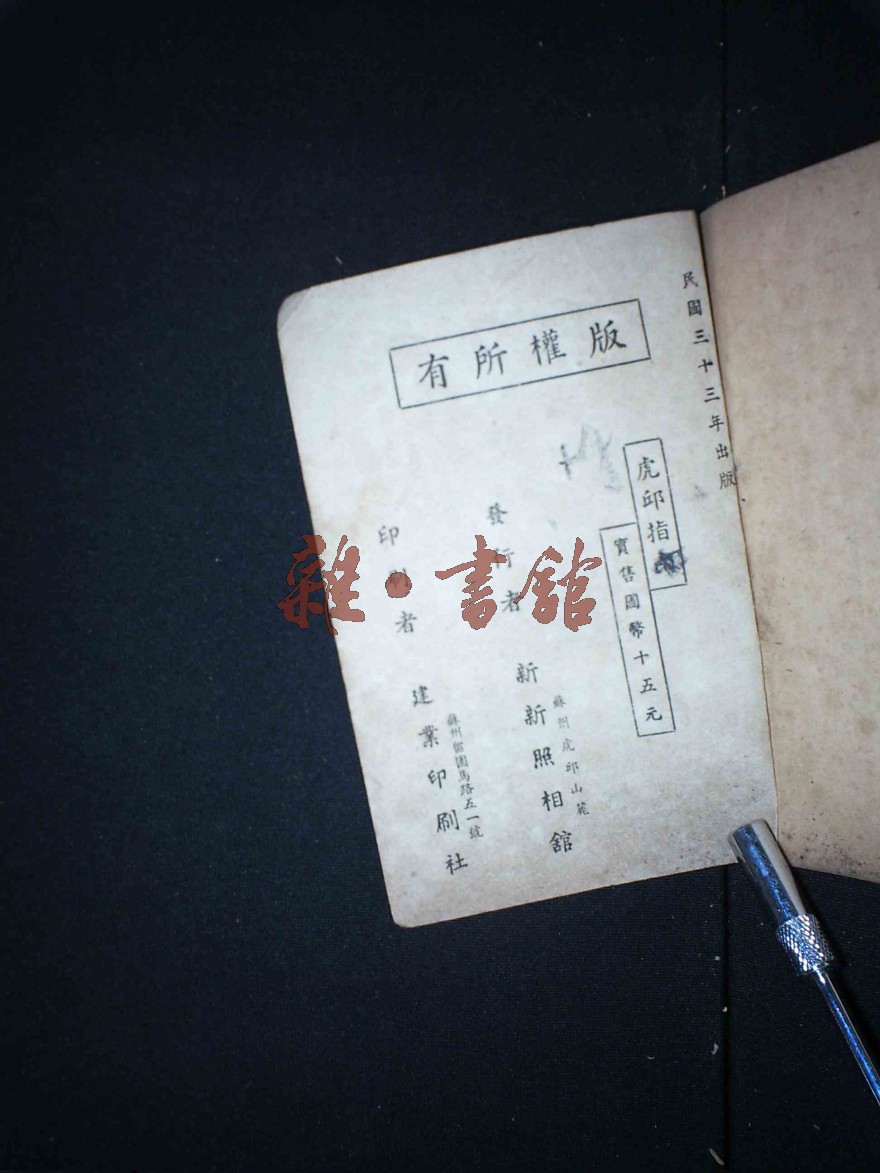 民國三十三年出版
版權所有
虎邱指
實售國幣十五元
發行者 新新照相舘
蘇州虎邱山
印刷者 建業印刷社
蘇州留園馬路五一號
雜·書舘